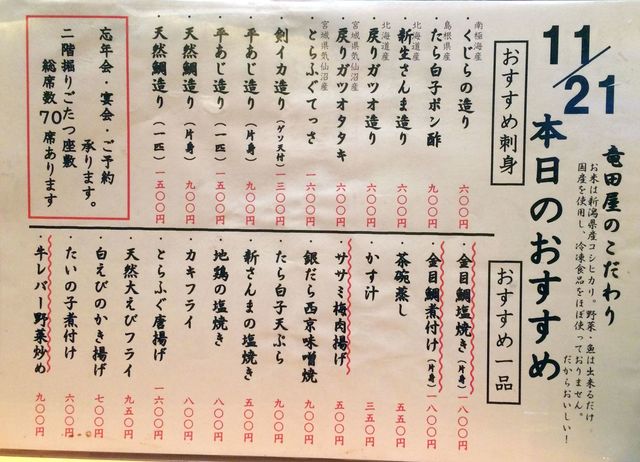 竜田屋のこだわり
お米は新潟県産コシヒカリ。野菜・魚は出来るだけ
国産を使用し、冷凍食品をほぼ使っておりません。
だからおいしい！
11/21
本日のおすすめ
おすすめ刺身
南極海産
・くじらの造り 六〇〇円
島根県産
・たら白子ポン酢 九〇〇円
北海道産
・新生さんま造り 六〇〇円
北海道産
・戻りガツオ造り 六〇〇円
宮城県気仙沼産
・戻りガツオタタキ 六〇〇円
宮城県気仙沼産
・とらふぐてっさ 一六〇〇円
・剣イカ造り（ゲソ天付） 一三〇〇円
・平あじ造り（片身） 九〇〇円
・平あじ造り（一匹） 一五〇〇円
・天然鯛造り（片身） 九〇〇円
・天然鯛造り（一匹） 一五〇〇円
忘年会・宴会・ご予約
承ります。
二階掘りごたつ座敷
総席数70席あります
おすすめ一品
・金目鯛塩焼き（片身） 一八〇〇円
・金目鯛煮付け（片身） 一八〇〇円
・茶碗蒸し 五五〇円
・かす汁 三五〇円
・ササミ梅肉揚げ 五〇〇円
・銀だら西京味噌焼 九〇〇円
・たら白子天ぷら 九〇〇円
・新さんまの塩焼き 九〇〇円
・地鶏の塩焼き 八〇〇円
・カキフライ 八〇〇円
・とらふぐ唐揚げ 一六〇〇円
・天然大えびフライ 九五〇円
・白えびのかき揚げ 七〇〇円
・たいの子煮付け 六〇〇円
・牛レバー野菜炒め 九〇〇円